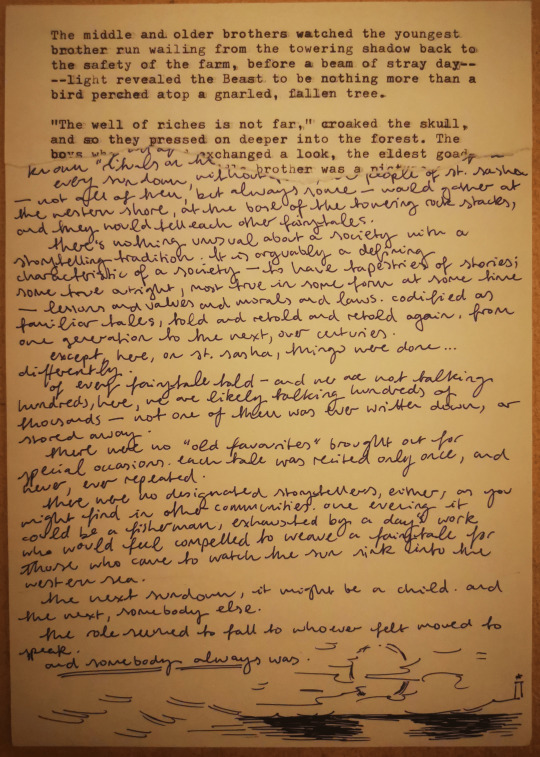 The middle and older brothers watched the youngest
brother run wailing from the towering shadow back to
the safety of the farm, before a beam of stray day--
--light revealed the Beast to be nothing more than a
bird perched atop a gnarled, fallen tree.
"The well of riches is not far," croaked the skull,
and so they pressed on deeper into the forest. The
boys exchanged a look, the eldest
brother was a
known "rituals
every sundown, without people of st. sasha
— not all of them, but always some — would gather at
the western shore, at the base of the towering rock stacks,
and they would tell each other fairytales.
there's nothing unusual about a society with a
storytelling tradition. It is arguably a defining
characteristic of a society — to have tapestries of stories;
some true outright, most true in some form at some time
— lessons and values and morals and laws. codified as
familiar tales, told and retold and retold again, from
one generation to the next, over centuries.
except, here, on st. sasha, things were done...
differently.
of every fairytale told — and we are not talking
hundreds, here, we are likely talking hundreds of
thousands — not one of them was ever written down, or
stored away.
there were no "old favourites" brought out for
special occasions. each tale was recited only once, and
never, ever repeated.
there were no designated storytellers, either, as you
might find in other communities. one evening it
could be a fisherman, exhausted by a day's work
who would feel compelled to weave a fairytale for
those who came to watch the sun sink into the
western sea.
the next sundown, it might be a child. and
the next, somebody else.
the role seemed to fall to whoever felt moved to
speak.
and somebody always was.